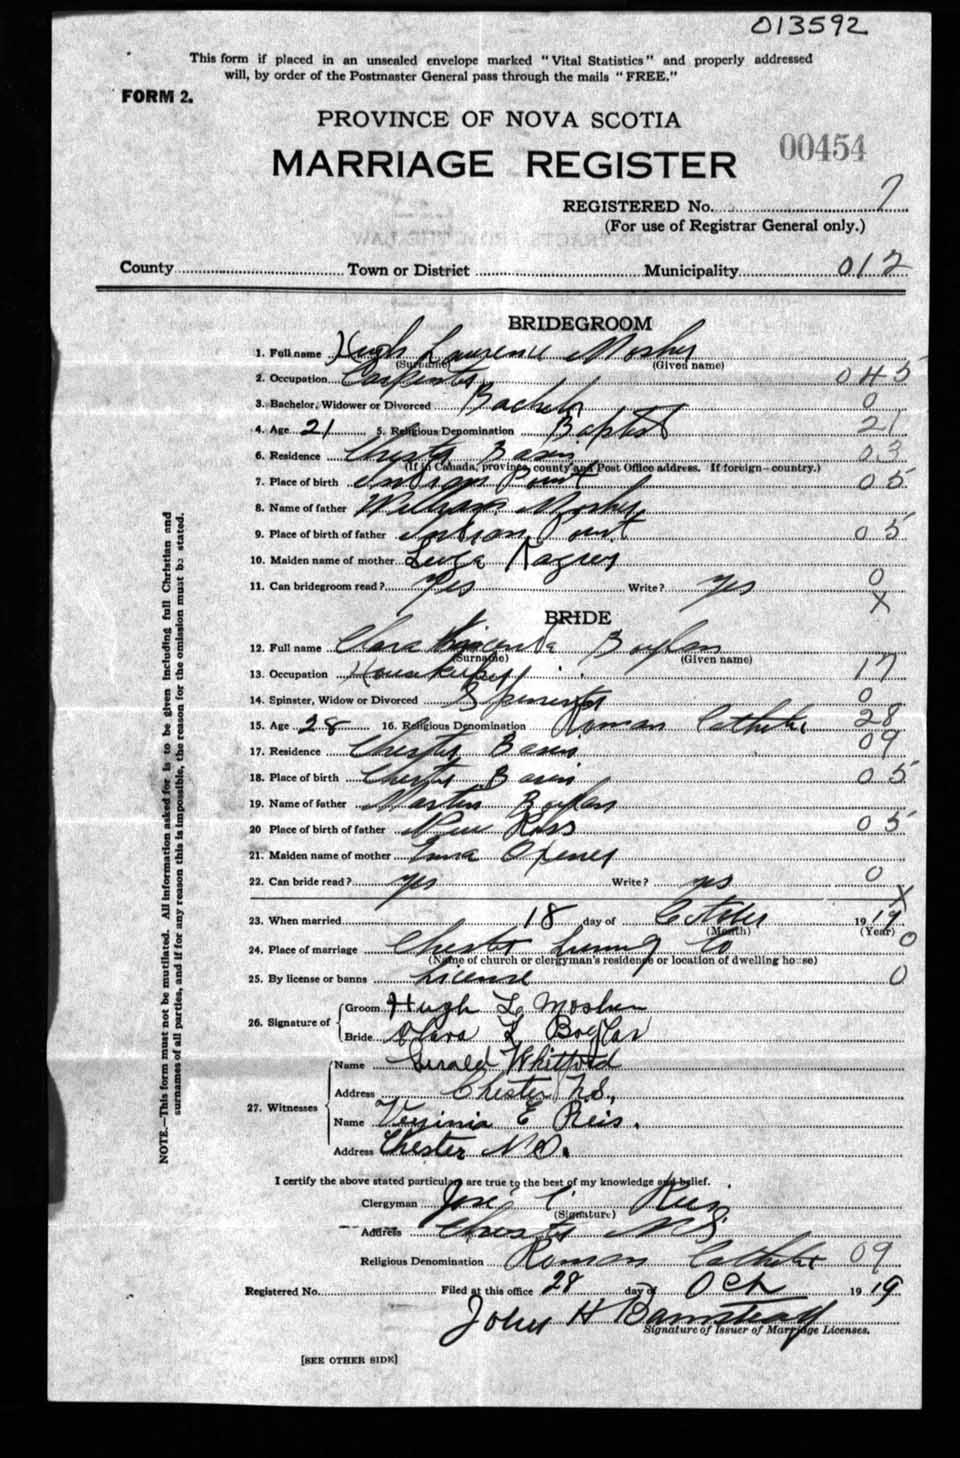 013592
This form if placed in an unsealed envelope marked "Vital Statistics" and properly addressed
will, by order of the Postmaster General pass through the mails "FREE."
FORM 2.
PROVINCE OF NOVA SCOTIA
00454
MARRIAGE REGISTER
REGISTERED No. 7
(For use of Registrar General only.)
County Town or District Municipality 012
BRIDEGROOM
1. Full name Hugh Lawrence Mosher
(Surname) (Given name)
2. Occupation Carpenter 045
3. Bachelor, Widower or Divorced Bachelor 0
4. Age 21 5. Religious Denomination Baptist 21
6. Residence Chester Basin 03
(If in Canada, province, county and Post Office address. If foreign—country.)
7. Place of birth Indian Point 05
8. Name of father William Mosher
9. Place of birth of father Indian Point 05
10. Maiden name of mother
11. Can bridegroom read? Yes Write? yes 0
X
BRIDE
12. Full name Clara Boylan
(Surname) (Given name)
13. Occupation Housekeeper 17
14. Spinster, Widow or Divorced Spinster 0
15. Age 28 16. Religious Denomination Roman Catholic 28
17. Residence Chester Basin 09
18. Place of birth Chester Basin 05
19. Name of father Martin Boylan
20 Place of birth of father New Ross 05
21. Maiden name of mother Emma Oxner
22. Can bride read? yes Write? yes 0
X
23. When married 18 day of October 1919
(Month) (Year)
24. Place of marriage Chester Lunenburg Co 0
(Name of church or clergyman's residence or location of dwelling house)
25. By license or banns License 0
26. Signature of
Groom Hugh L. Mosher
Bride Clara L Boylan
27. Witnesses
Name Gerald Whitford
Address Chester N.S.,
Name Verjinia E Reis.
Address Chester N.S.
I certify the above stated particulars are true to the best of my knowledge and belief.
Clergyman José C. Reis
(Signature)
Address Chester N.S.
Religious Denomination Roman Catholic 09
Registered No. Filed at this office 28 day of Oct 1919
John H
Signature of Issuer of Marriage Licenses.
[SEE OTHER SIDE]
NOTE.—This form must not be mutilated. All information asked for is to be given including full Christian and
surnames of all parties, and if for any reason this is impossible, the reason for the omission must be stated.